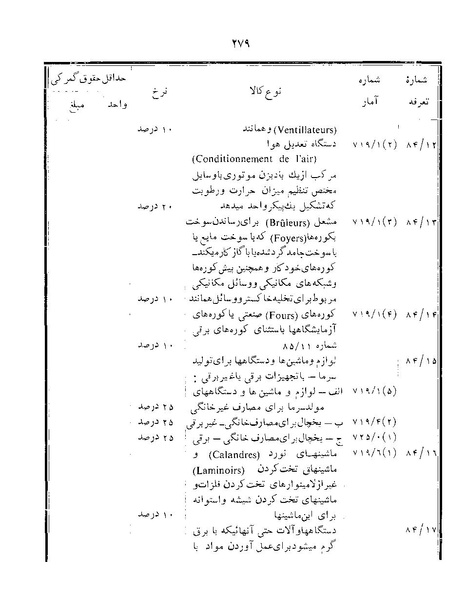 ۲۷۹
شمارهٔ شماره نوع کالا نرخ حداقل حقوق گمرکی
تعرفه آمار واحد مبلغ
(Ventillateurs) وهمانند ۱۰ درصد
۸۴/۱۲ ۷۱۹/۱(۲) دستگاه تعدیل هوا
(Conditionnement de l'air)
مرکب ازیک بادبزن موتوری باوسایل
مختص تنظیم میزان حرارت ورطوبت
که تشکیل یك پیکرواحد میدهد ۲۰ درصد
۸۴/۱۳ ۷۱۹/۱(۳) مشعل (Brûleurs) برای رساندن سوخت
بکوره‌ها (Foyers) که با سوخت مایع یا
با سوخت جامد گرد شده یا با گاز کار میکند ـ
کوره‌های خودکار و همچنین پیش کوره‌ها
وشبکه‌های مکانیکی و وسائل مکانیکی
مربوط برای تخلیه خاکستر و وسائل همانند ۱۰ درصد
۸۴/۱۴ ۷۱۹/۱(۴) کوره‌های (Fours) صنعتی یا کوره‌های
آزمایشگاهها باستثنای کوره‌های برقی
شماره ۸۵/۱۱ ۱۰ درصد
۸۴/۱۵ لوازم وماشین‌ها و دستگاهها برای تولید
سرما ـ با تجهیزات برقی یا غیربرقی :
۷۱۹/۱(۵) الف ـ لوازم و ماشین ها و دستگاههای
مولد سرما برای مصارف غیرخانگی ۲۵ درصد
۷۱۹/۴(۲) ب ـ یخچال برای مصارف خانگی ـ غیربرقی ۲۵ درصد
۷۲۵/۰(۱) ج ـ یخچال برای مصارف خانگی ـ برقی ۲۵ درصد
۸۴/۱۶ ۷۱۹/۶(۱) ماشینهای نورد (Calandres) و
ماشینهای تخت کردن (Laminoirs)
غیر از لامینوارهای تخت کردن فلزات و
ماشینهای تخت کردن شیشه واستوانه
برای این ماشینها ۱۰ درصد
۸۴/۱۷ دستگاهها و آلات حتی آنهائیکه با برق
گرم میشود برای عمل آوردن مواد با